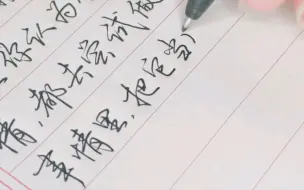 你认为
情,都去尝试做
事情里,把它当